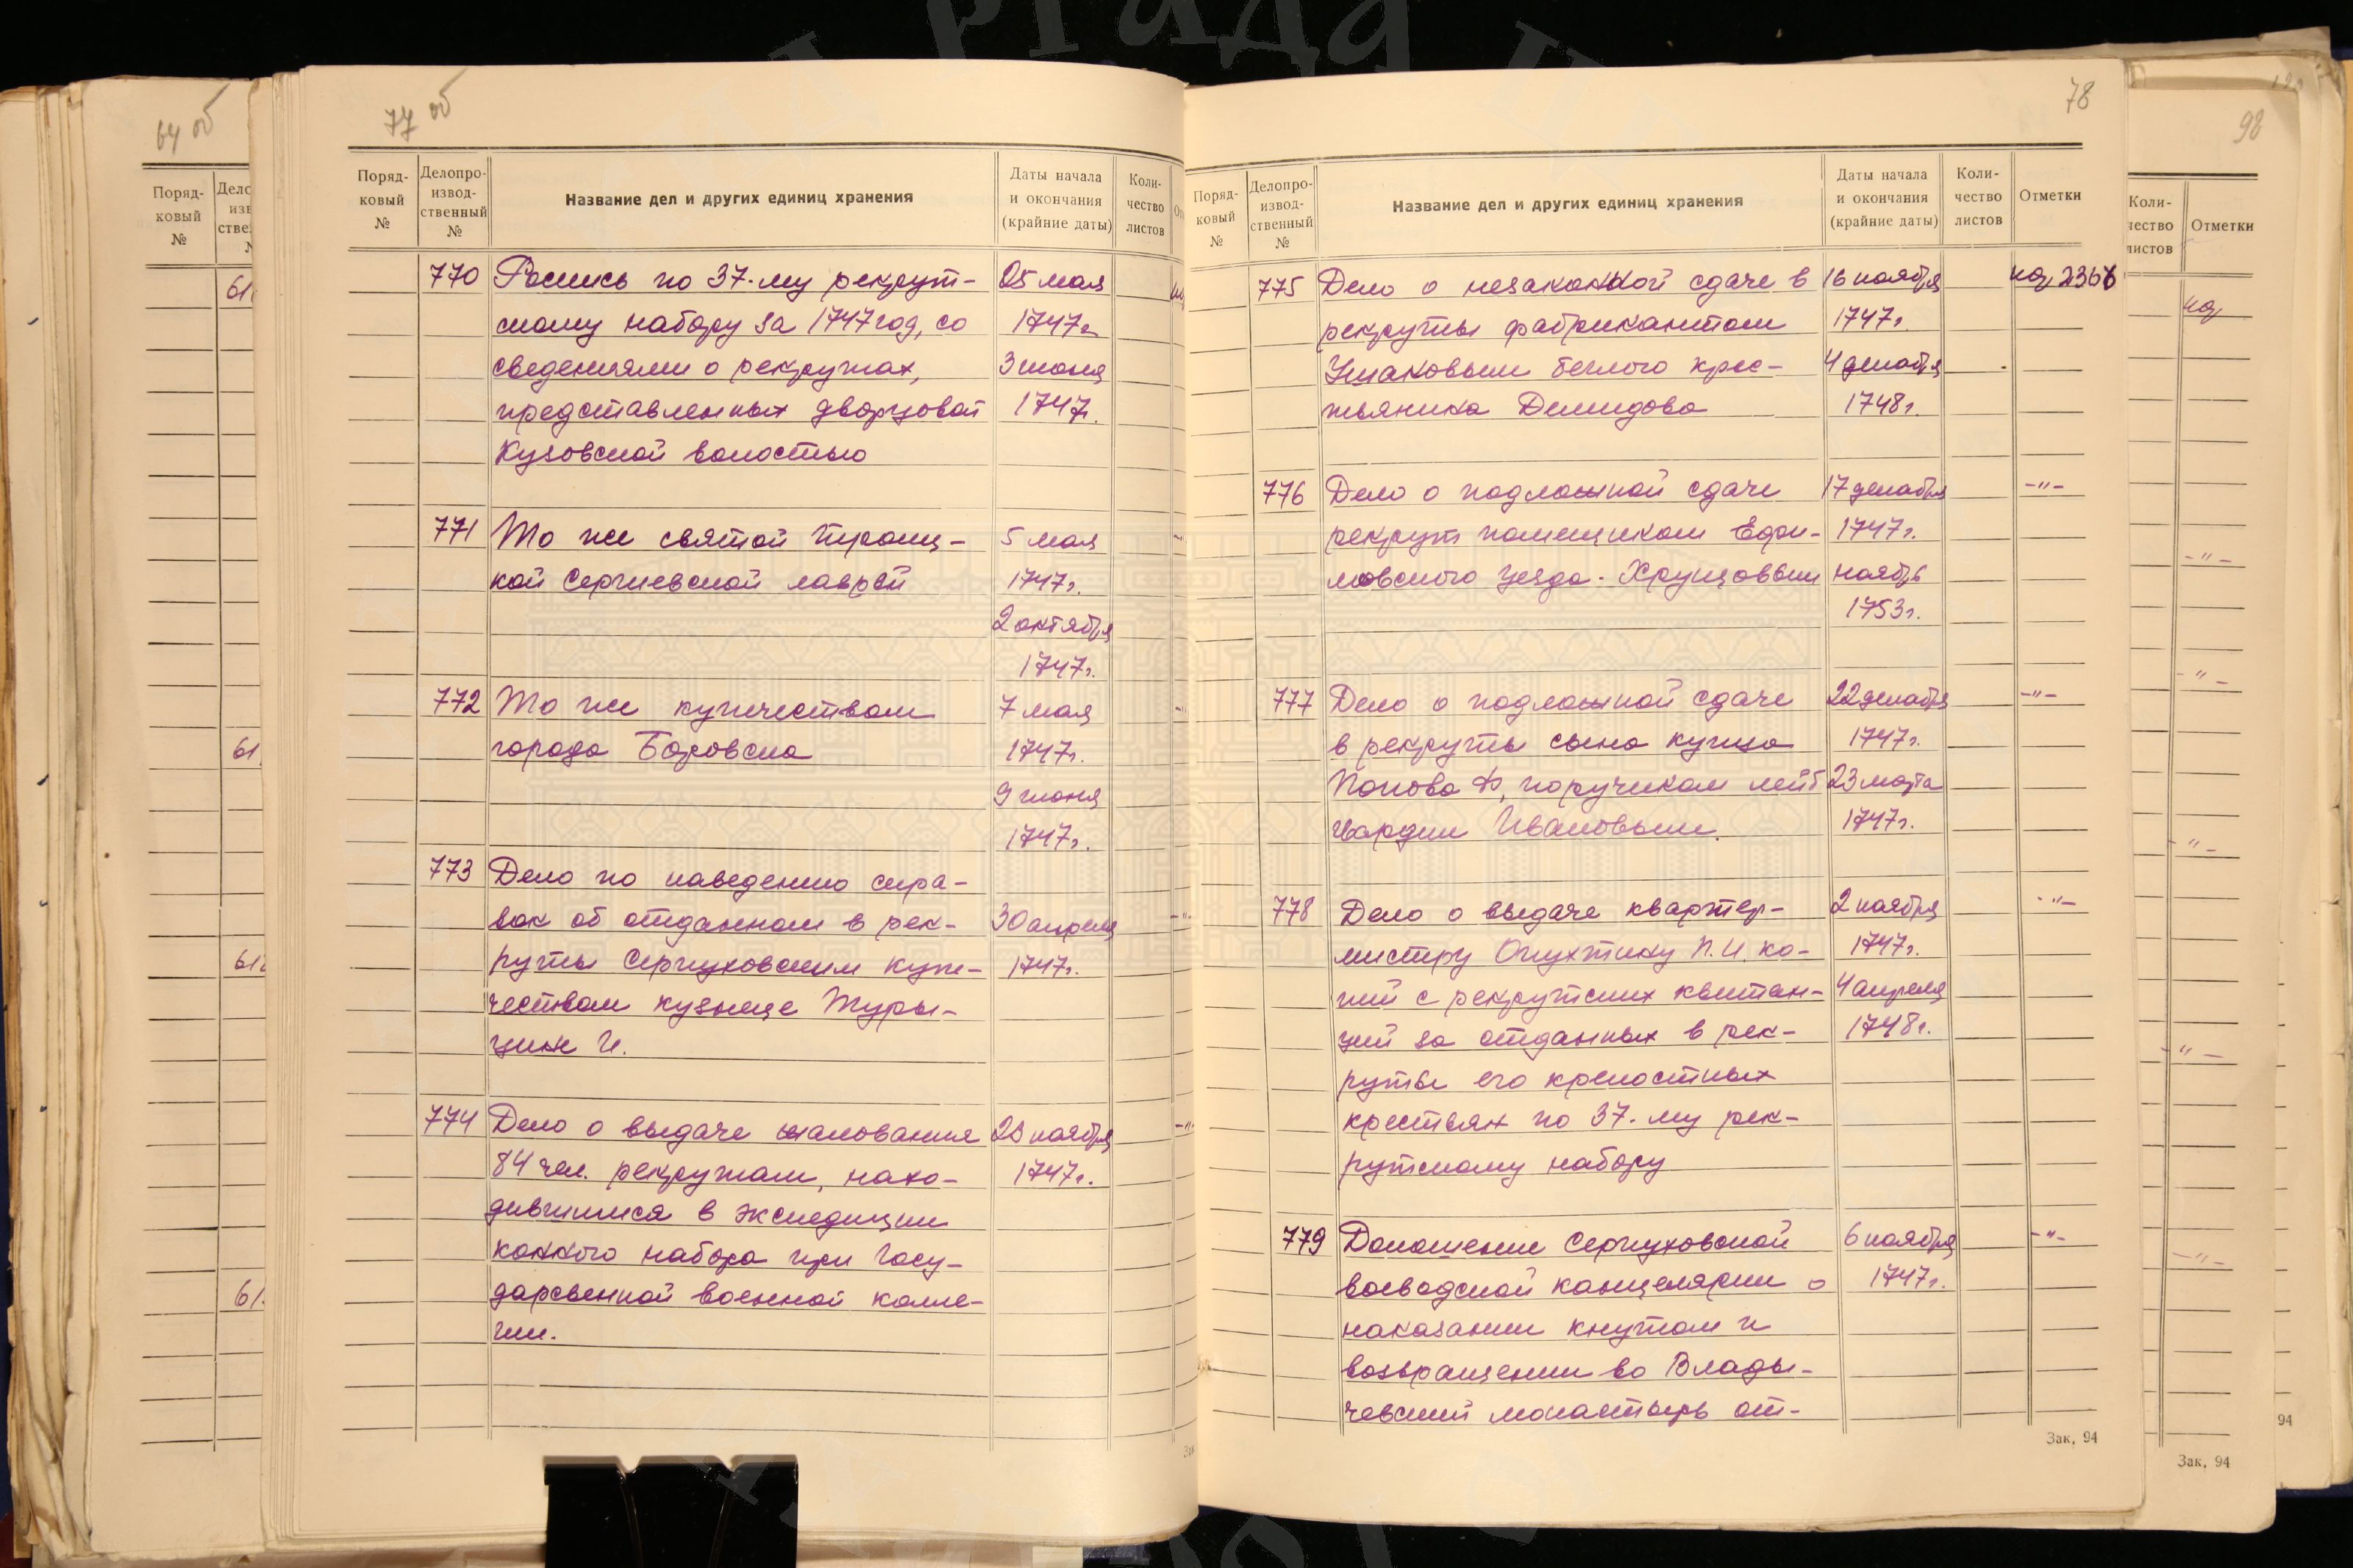 64 об
Поряд-
ковый
№
77 об
Поряд-
ковый
№
Делопро-
извод-
ственный
№
Название дел и других единиц хранения
Даты начала
и окончания
(крайние даты)
Коли-
чество
листов
770 Роспись по 37-му рекрут- 25 мая
скому набору за 1747 год, со 1747 г.
сведениями о рекрутах, 3 июня
представленных дворцовой 1747 г.
Кузовской волостью
771 То же святой Троиц- 5 мая
кой Сергиевской лаврой 1747 г.
2 октября
1747 г.
772 То же купечеством 7 мая
города Боровска 1747 г.
9 июня
1747 г.
773 Дело по наведению спра-
вок об отданном в рек- 30 апреля
руты Серпуховским купе- 1747 г.
чеством кузнеце Туры-
цине И.
774 Дело о выдаче жалования 23 ноября
84 чел. рекрутам, нахо- 1747 г.
дившимся в экспедиции
конного набора при Госу-
дарсвенной военной колле-
гии.
78
Поряд-
ковый
№
Делопро-
извод-
ственный
№
Название дел и других единиц хранения
Даты начала
и окончания
(крайние даты)
Коли-
чество
листов
Отметки
775 Дело о незаконной сдаче в 16 ноября
рекруты фабрикантом 1747 г.
Ушаковым беглого крес- 4 декабря
тьянина Демидова 1748 г.
776 Дело о подложной сдаче 17 декабря -"-
рекрут помещиком Ефи- 1747 г.
мовского уезда. Хрущовым ноябрь
1753 г.
777 Дело о подложной сдаче 22 декабря -"-
в рекруты сына купца 1747 г.
Попова Ф, поручиком лейб 23 марта
гвардии Ивановым. 1747 г.
778 Дело о выдаче квартер- 2 ноября -"-
мистру Опухтину П. И. ко- 1747 г.
пий с рекрутских квитан- 4 апреля
ций за отданных в рек- 1748 г.
руты его крепостных
крестьян по 37-му рек-
рутскому набору
779 Доношение Серпуховской 6 ноября -"-
воеводской канцелярии о 1747 г.
наказании кнутом и
возвращении во Влады-
чевский монастырь от-
Зак. 94
98
Коли-
чество
листов
Отметки
Зак. 94
94